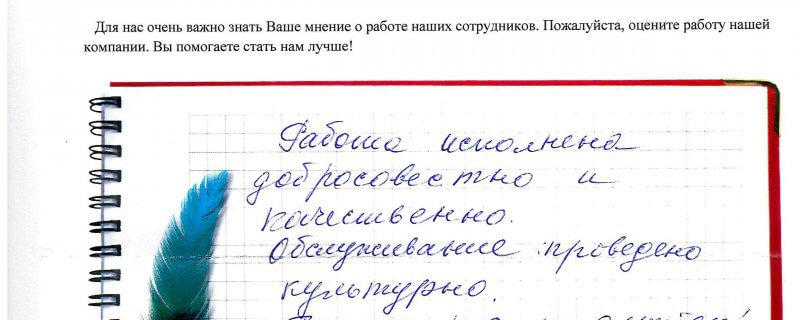 Для нас очень важно знать Ваше мнение о работе наших сотрудников. Пожалуйста, оцените работу нашей
компании. Вы помогаете стать нам лучше!
Работа исполнена
добросовестно и
качественно.
Обслуживание проведено
культурно.